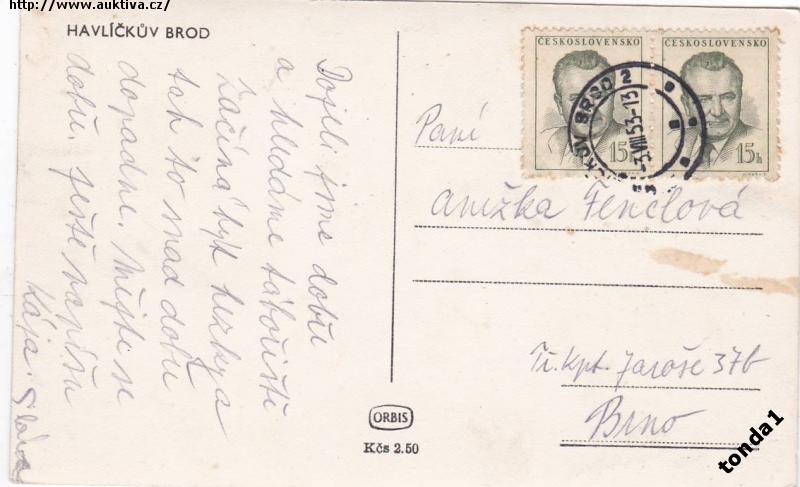 http://www.auktiva.cz/
HAVLÍČKŮV BROD
Dojeli jsme dobře
a hledáme tábořiště
Začíná být hezky a
tak to snad dobře
dopadne. Mějte se
dobře. Ještě napíšu
Kája.
ORBIS
Kčs 2.50
ČESKOSLOVENSKO
15h
ČESKOSLOVENSKO
15h
BROD 2
-3.VIII.53-13
Paní
Anežka Fenclová
Tř. kpt. Jaroše 37b
Brno
tonda1